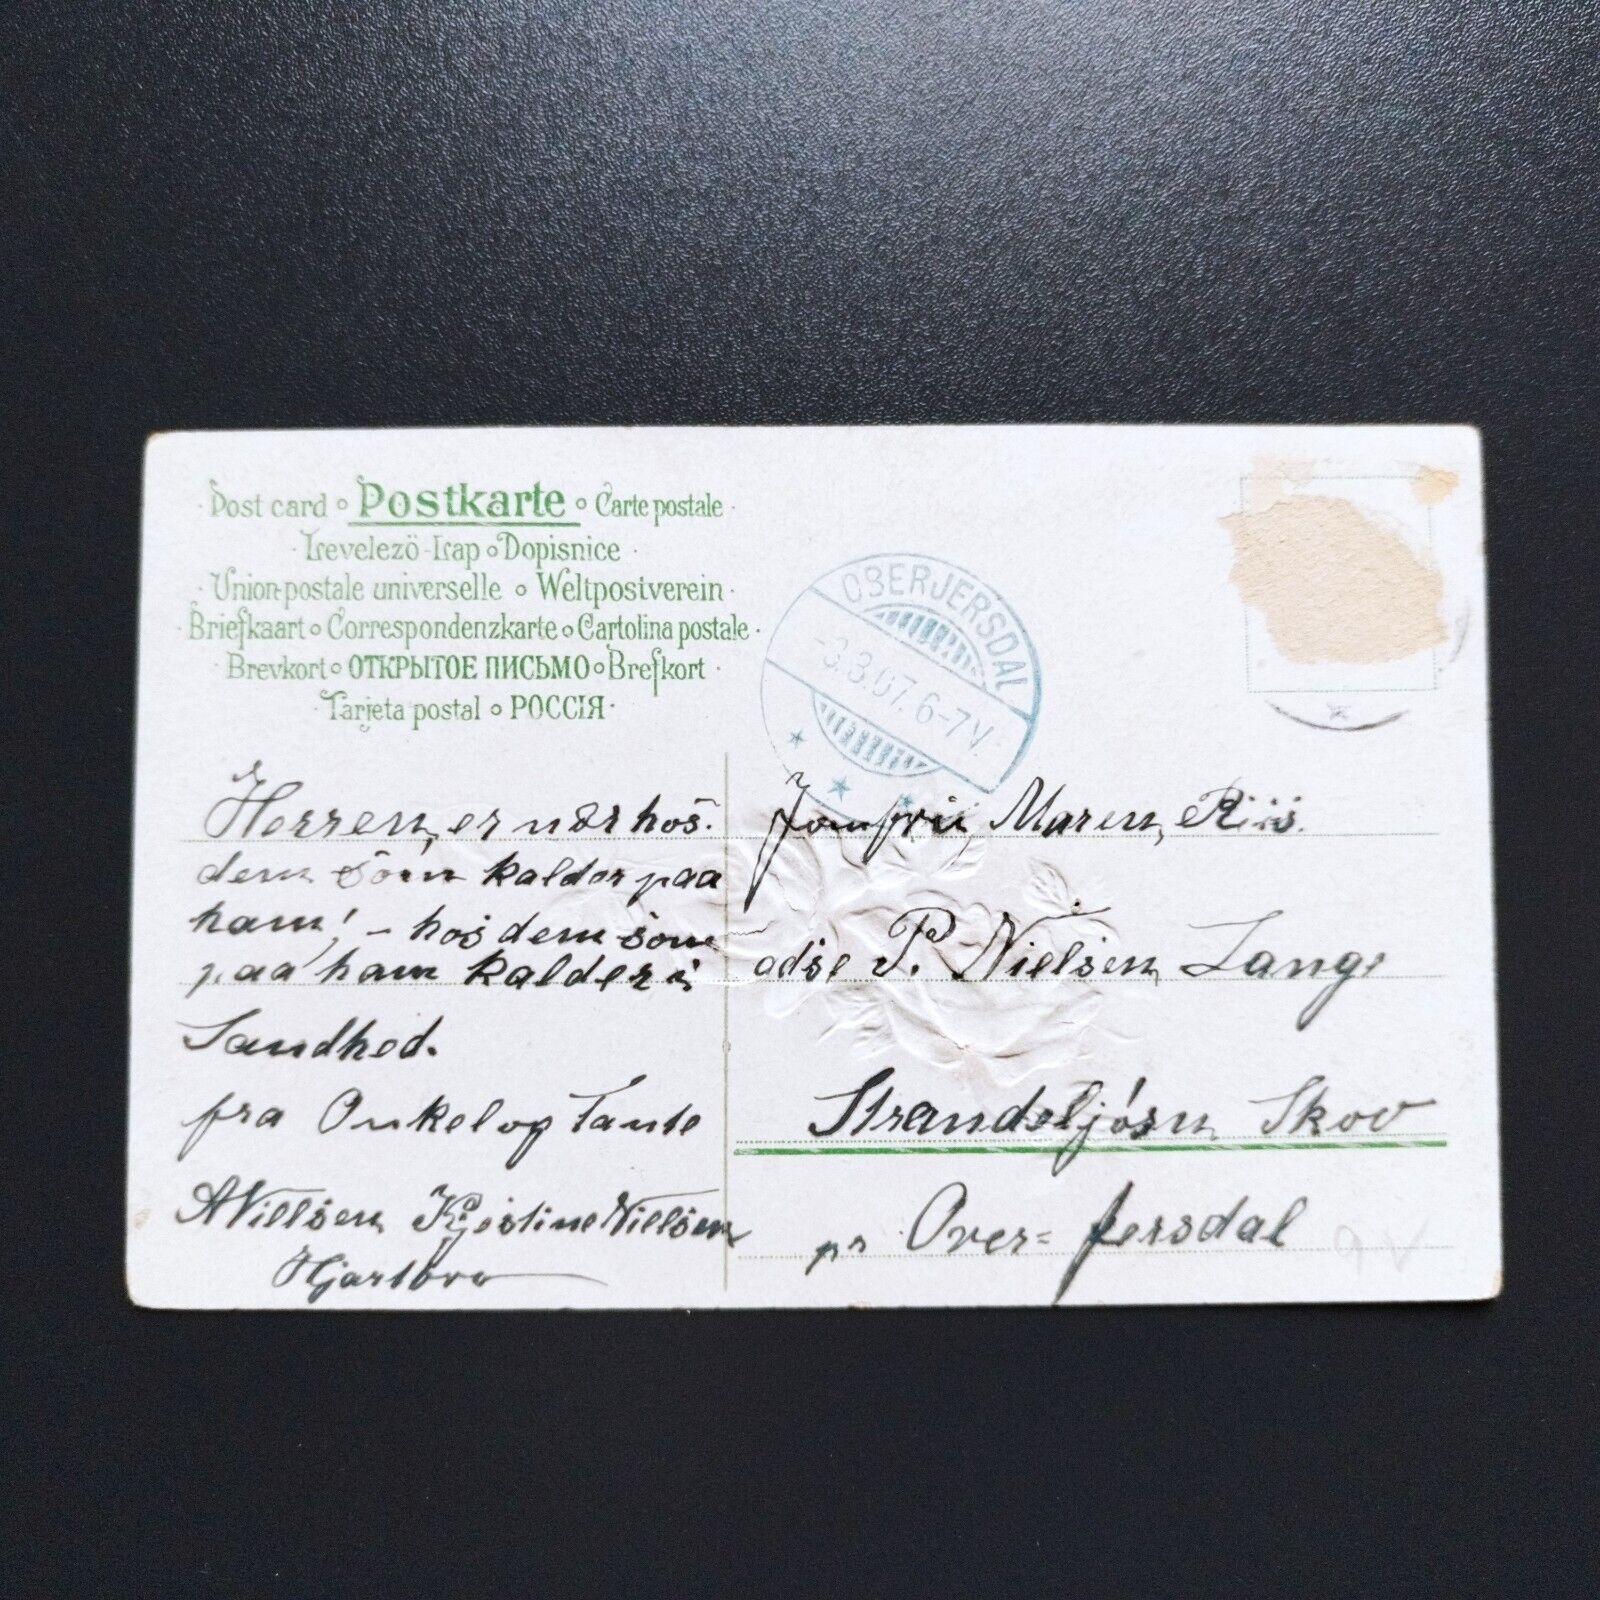 Post card ∘ Postkarte ∘ Carte postale
Levelezö-Lap ∘ Dopisnice
Union postale universelle ∘ Weltpostverein
Briefkaart ∘ Correspondenzkarte ∘ Cartolina postale
Brevkort ∘ ОТКРЫТОЕ ПИСЬМО ∘ Brefkort
Tarjeta postal ∘ РОССІЯ
OBERJERSDAL
-3.3.07.6-7V.
Herren, er nær hos
dem som kalder paa
ham! - hos dem som
paa ham kalder i
Sandhed.
fra Onkel og Tante
A Nielsen Kjestine Nielsen
Hjartbro
Jomfru Maren Riis.
adse P. Nielsen Lang
Skov
pr Over= Jersdal